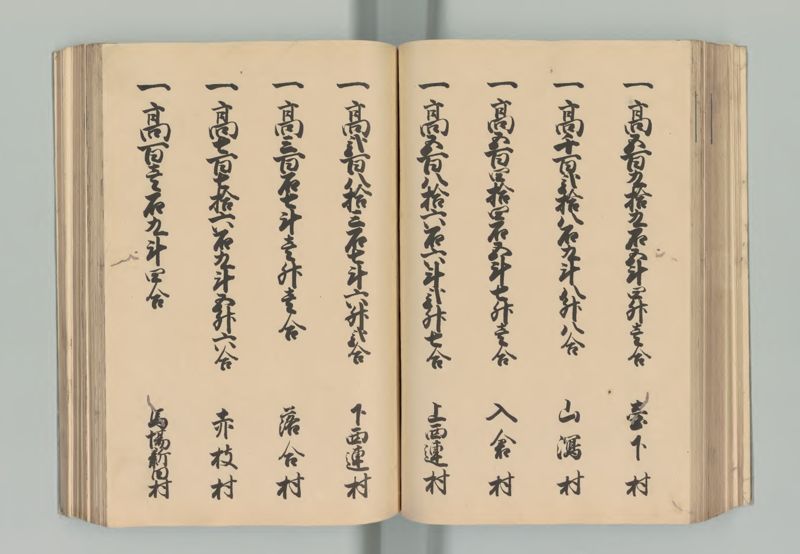 一 高五百九拾九石五斗四升壱合 壺下村
一 高千百弐拾八石九斗八升八合 山瀉村
一 高五百四拾四石五斗七升壱合 入倉村
一 高五百八拾六石六斗弐升七合 上西連村
一 高弐百八拾三石七斗六升弐合 下西連村
一 高三百石七斗壱升壱合 落合村
一 高七百七拾六石九斗五升六合 赤枝村
一 高百壱石九斗四合 馬場新田村